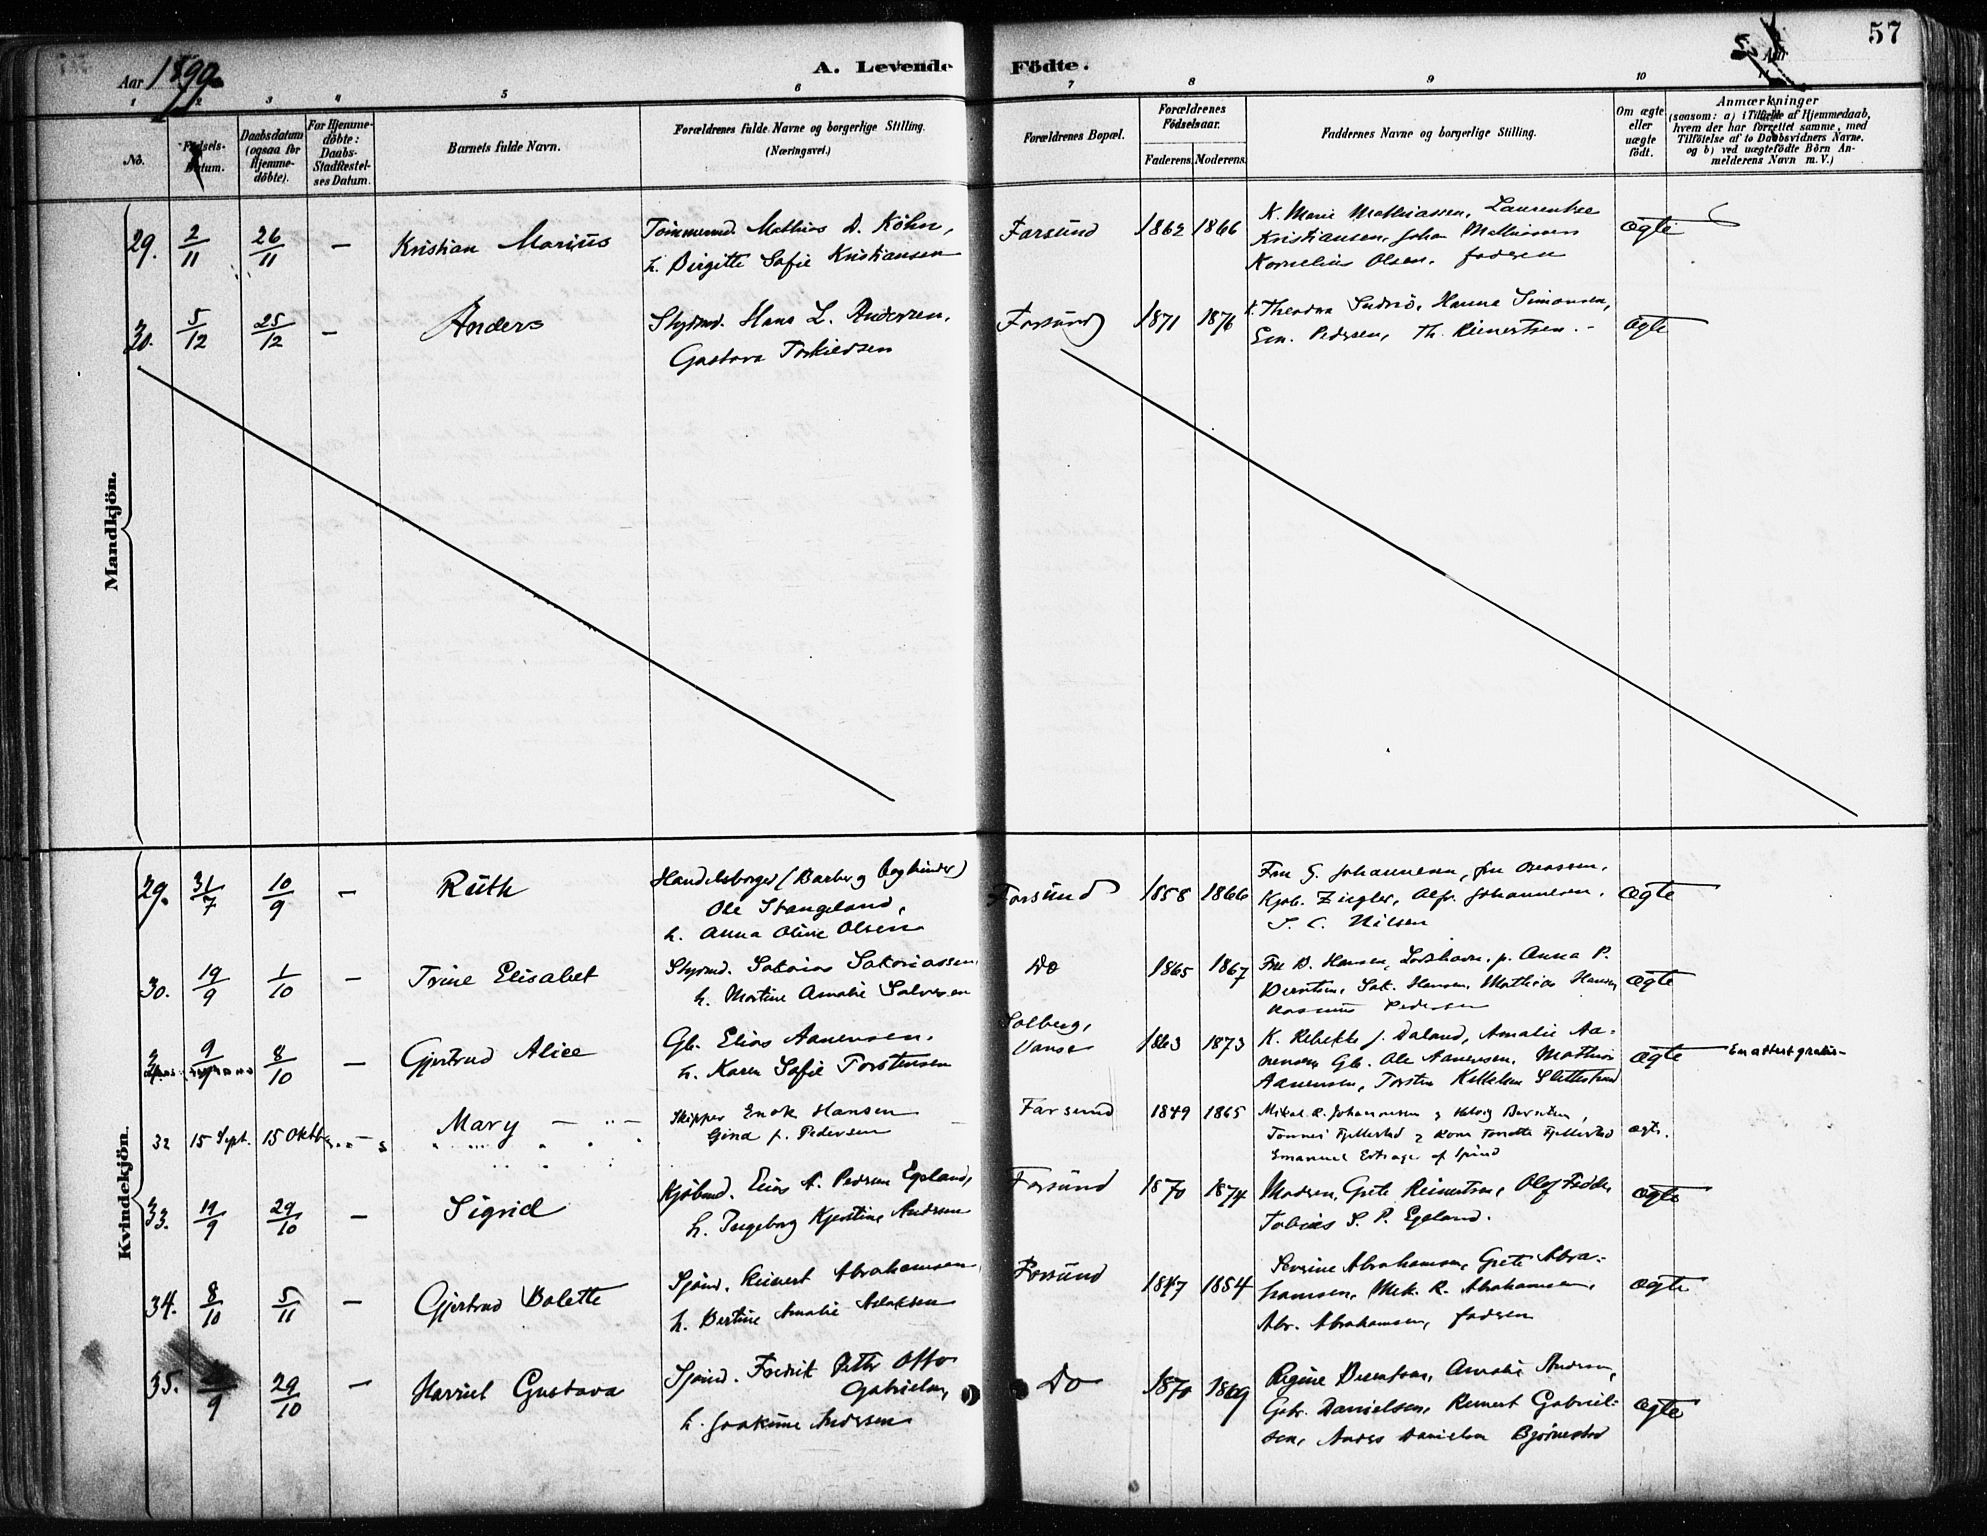 57
Aar 1899
A. Levende Födte.
Aar
1 2 3 4 5 6 7 8 9 10
No.
Fødsels-Datum.
Daabsdatum (ogsaa for Hjemme-döbte).
For Hjemme-döbte: Daabs-Stadfæstel-ses Datum.
Barnets fulde Navn.
Forældrenes fulde Navne og borgerlige Stilling.
(Næringsvei.)
Forældrenes Bopæl.
Forældrenes Födselsaar.
Faderens. Moderens.
Faddernes Navne og borgerlige Stilling.
Om ægte eller uægte födt.
Anmærkninger
(saasom: a) i Tilfælde af Hjemmedaab,
hvem der har forrettet samme, med
Tilföielse af to Daabsvidners Navne.
og b) ved uægtefödte Börn An-
melderens Navn m. V.)
Mandkjön.
29. 2/11 26/11 — Kristian Marius
Tömmermd. Mathias D. Köhn,
h. Birgitte Sofie Kristiansen
Farsund 1862 1866
K. Marie Mathiassen, Laurentze
Kristiansen, Johan Mathiassen
Kornelius Olsen, faderen
ægte
30. 5/12 25/12 — Anders
Styrmd. Hans L. Andersen,
Gustava Torkildsen
Farsund 1871 1876
Hanna Simonsen,
Em. Pedersen, Th. Reinertsen. -
ægte
Kvindekjön.
29. 31/7 10/9 — Ruth
Handelsborger (Barber og Bogbinder)
Ole Stangeland,
h. Anna Oline Olsen
Farsund 1858 1866
Fru G. Johannesen, fru
Kjøb. Ziegler, Alfr. Johannesen,
S. C. Nilsen
ægte
30. 19/9 1/10 — Trine Elisabet
Styrmd. Sakarias Sakariassen,
h. Martine Amalie Salvesen
Do 1865 1867
Fru B. Hansen, Loshavn, p. Anna P.
Berntsen, Sak. Hansen, Mathias Hansen
Rasmus Pedersen
ægte
9/9 8/10 — Gjertrud Alice
Gb. Elias Aanensen,
h. Karen Sofie Torstensen
Solberg,
Vanse 1863 1873
K. Rebekka J. Daland, Amalie Aa-
nensen Gb. Ole Aanensen, Mathias
Aanensen, Torsten Ketelsen Slettestrand
ægte
En attest gratis -
32 15 Sept. 15 Oktbr. Mary
Skipper Enok Hansen
Gina f. Pedersen
Farsund 1849 1865
Mikal R. Johannesen og Helvig Berntsen,
Tønnes Fjellestad og Kone Tonette Fjellestad
Emanuel af Spind
ægte.
33. 19/9 29/10 — Sigrid
Kjøbmd. Elias A. Pedersen Egeland,
h. Ingeborg Kjerstine Andersen
Farsund 1870 1874
Madsen, Grete Reinertsen, Olaf
Tobias S. P. Egeland.
ægte
34. 8/10 5/11 — Gjertrud Bolette
Sjømd. Reinert Abrahamsen,
h. Bertine Amalie Aslaksen
Farsund 1847 1854
Severine Abrahamsen, Grete Abra-
hamsen, Mek. R. Abrahamsen,
Abr. Abrahamsen, faderen
ægte
35. /9 29/10 — Harriet Gustava
Sjømd. Fredrik Peter Otto
Gabrielsen,
h. Joakime Andersen
Do 1870 1869
Regine Berntsen, Amalie Andersen,
Gabr. Danielsen, Reinert Gabriel-
sen, Anders Danielsen Bjørnestad
ægte